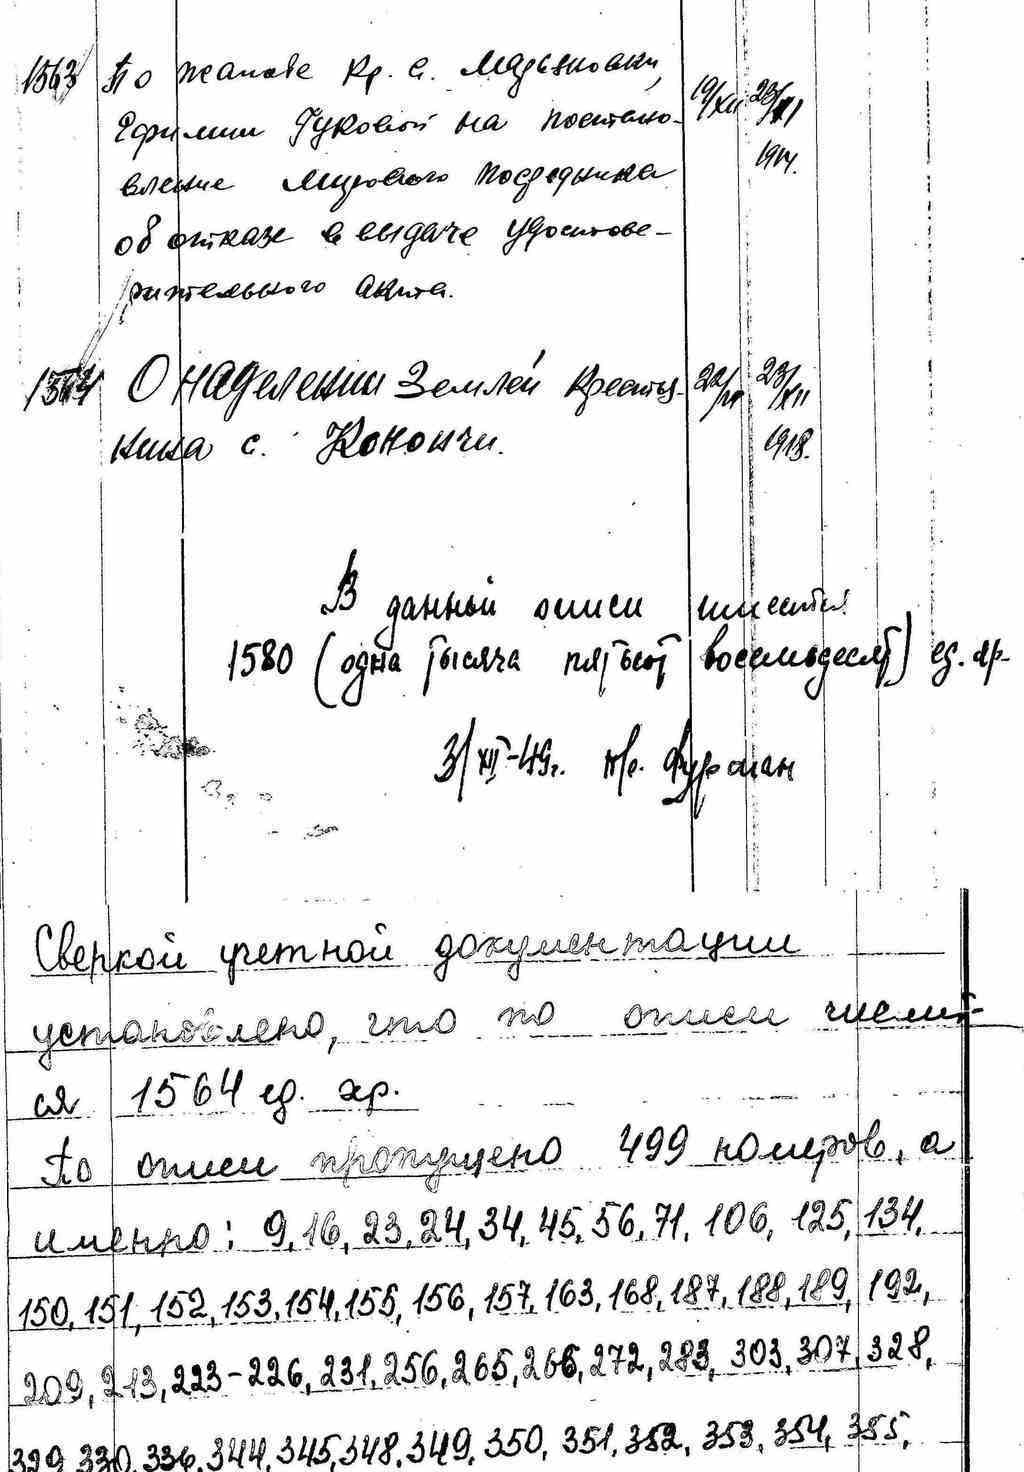 1563 По жалобе кр. с. Мартыновки, 19/XII 23/XII
Ефимии Гуковой на постано-
1914.
вление Мирового Посредника
об отказе в выдаче удостове-
рительного акта.
1564 О наделении землей крестья- 22/VI 23/XII
нина с. Конончи. 1918.
В данной описи имеется
1580 (одна тысяча пятьсот восемьдесят) ед. хр.
3/XII-49г. Фурман
Сверкой учетной документации
установлено, что по описи числит-
ся 1564 ед. хр.
По описи пропущено 499 номеров, а
именно: 9, 16, 23, 24, 34, 45, 56, 71, 106, 125, 134,
150, 151, 152, 153, 154, 155, 156, 157, 163, 168, 187, 188, 189, 192,
209, 213, 223-226, 231, 256, 265, 266, 272, 283, 303, 307, 328,
329, 330, 336, 344, 345, 348, 349, 350, 351, 352, 353, 354, 355,